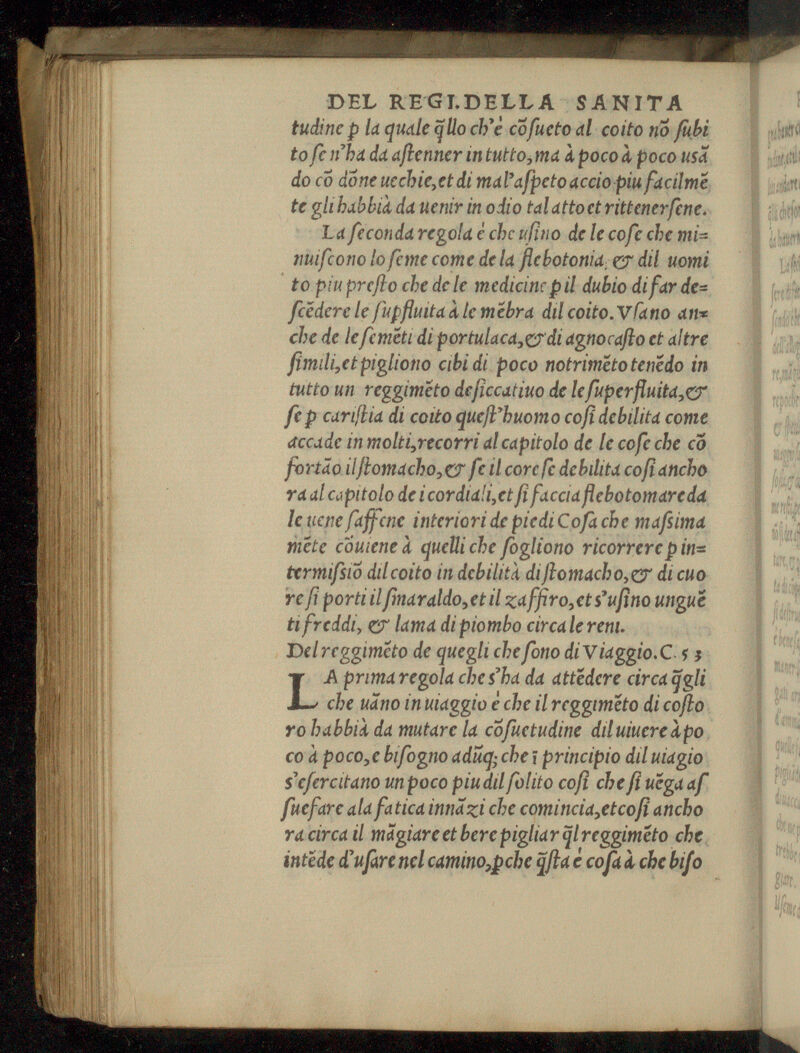 DEL REGI.DELLA SANITA
tudine p̱ la quale q̃llo ch'e cõſueto al coito nõ ſubi
to ſe n'ha da aſtenner in tutto,ma à poco à poco uſã
do cõ dõne uecchie,et di mal'aſpeto accio piu facilmẽ
te gli habbià da uenir in odio tal atto et rittenerſene.
La ſeconda regola é che uſino de le coſe che mi=
nuiſcono lo ſeme come de la flebotonia, & dil uomi
to piu preſto che de le medicine p̱ il dubio di far de=
ſcẽdere le ſup̱fluita à le mẽbra dil coito. Vſano an=
che de le ſemẽti di portulaca,& di agnocaſto et altre
ſimili,et pigliono cibi di poco notrimẽto tenẽdo in
tutto un reggimẽto deſiccatiuo de le ſuperfluita,&
ſe p̱ cariſtia di coito queſt'huomo coſi debilita come
accade in molti,recorri al capitolo de le coſe che cõ
fortão il ſtomacho,& ſe il core ſe debilita coſi ancho
ra al capitolo de i cordiali,et ſi faccia flebotomare da
le uene ſaffene interiori de piedi Coſa che maſsima
mẽte cõuiene à quelli che ſogliono ricorrere p̱ in=
termiſsiõ dil coito in debilità di ſtomacho,& di cuo
re ſi porti il ſmaraldo,et il zaffiro,et s'uſino unguẽ
ti freddi, & lama di piombo circa le reni.
Del reggimẽto de quegli che ſono di Viaggio.C. 53
LA prima regola che s'ha da attẽdere circa q̃gli
che uãno in uiaggio é che il reggimẽto di coſto
ro habbià da mutare la cõſuetudine dil uiuere à po
co à poco,e biſogno adũq; che ĩ principio dil uiagio
s'eſercitano un poco piu dil ſolito coſi che ſi uẽga aſ
ſuefare ala fatica innãzi che comincia,et coſi ancho
ra circa il mãgiare et bere pigliar q̃l reggimẽto che
intẽde d'uſare nel camino,p̱che q̃ſta é coſa à che biſo